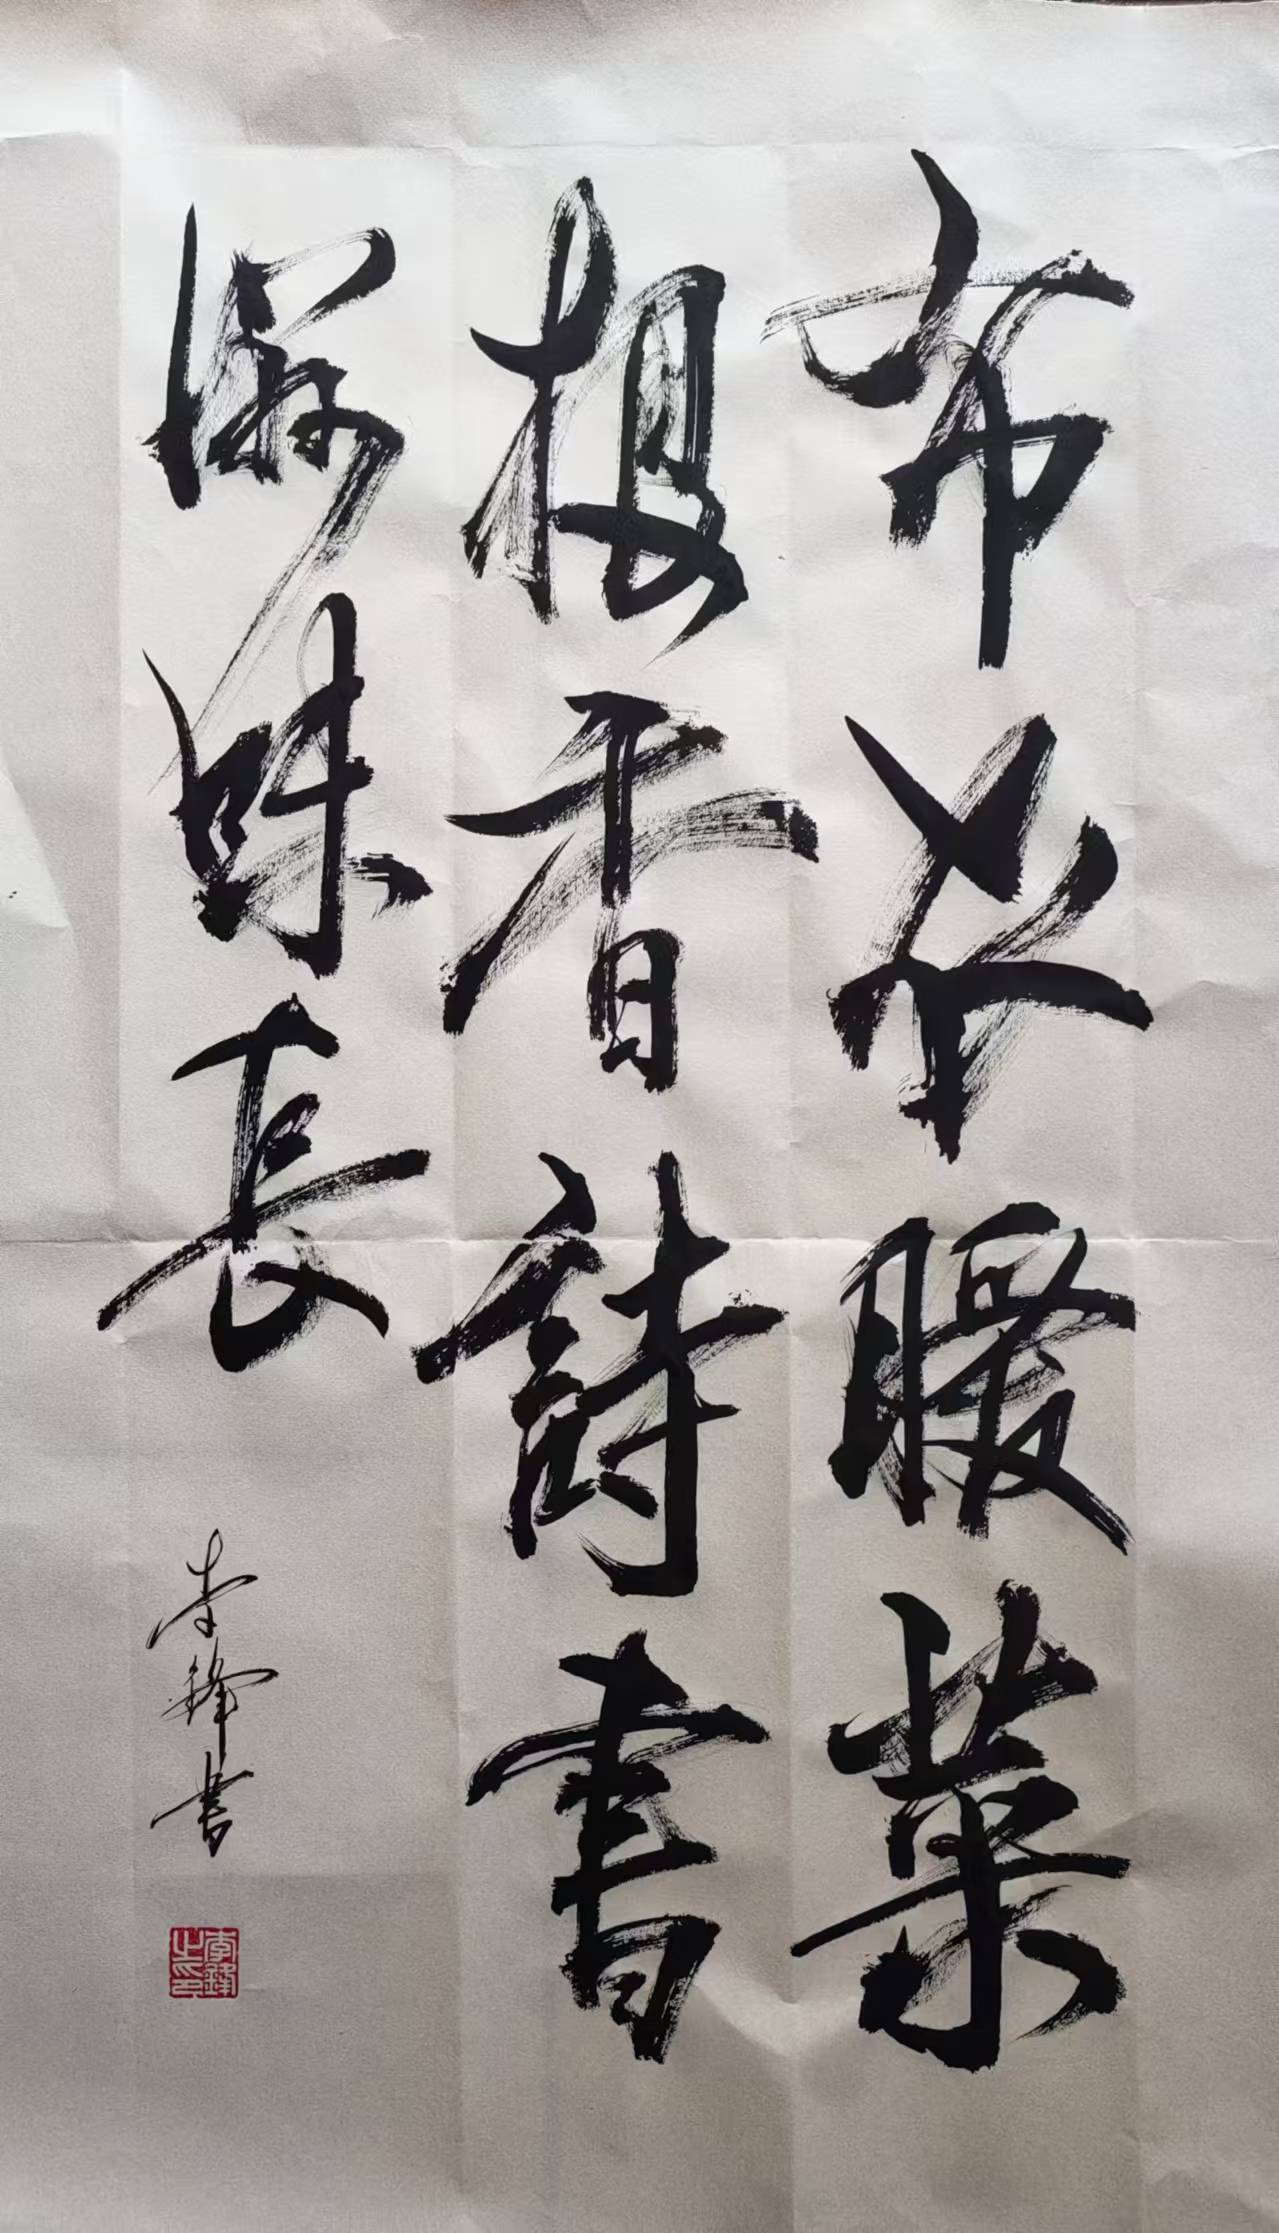 布衣暖菜
根香詩書
滋味長
李鋒書
李鋒之印